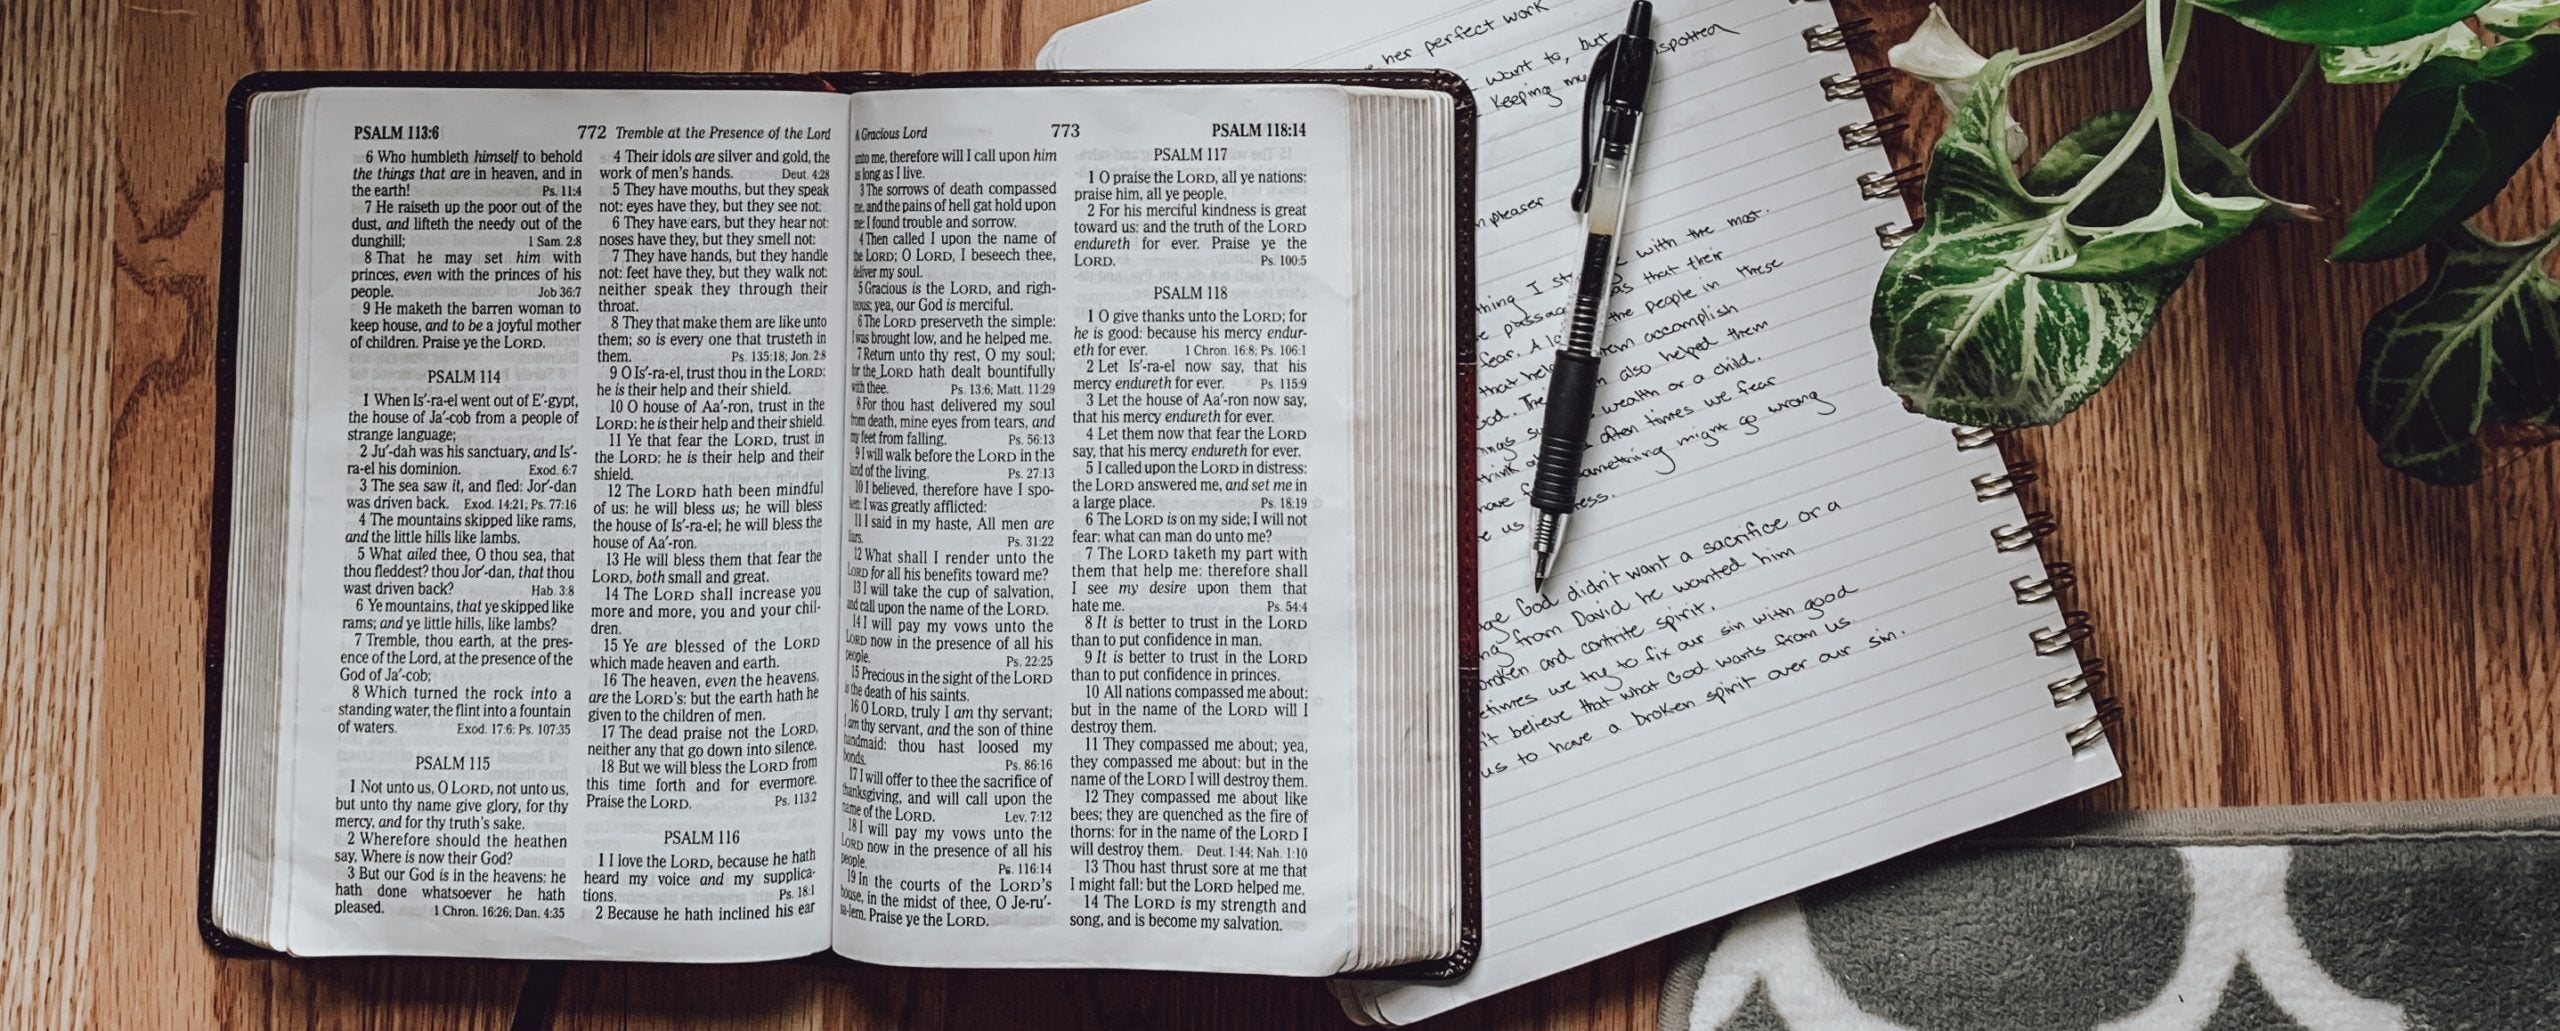 PSALM 113:6
772 Tremble at the Presence of the Lord
6 Who humbleth himself to behold
the things that are in heaven, and in
the earth! Ps. 11:4
7 He raiseth up the poor out of the
dust, and lifteth the needy out of the
dunghill; 1 Sam. 2:8
8 That he may set him with
princes, even with the princes of his
people. Job 36:7
9 He maketh the barren woman to
keep house, and to be a joyful mother
of children. Praise ye the LORD.
PSALM 114
1 When Is′-ra-el went out of E′-gypt,
the house of Ja′-cob from a people of
strange language;
2 Ju′-dah was his sanctuary, and Is′-
ra-el his dominion. Exod. 6:7
3 The sea saw it, and fled: Jor′-dan
was driven back. Exod. 14:21; Ps. 77:16
4 The mountains skipped like rams,
and the little hills like lambs.
5 What ailed thee, O thou sea, that
thou fleddest? thou Jor′-dan, that thou
wast driven back? Hab. 3:8
6 Ye mountains, that ye skipped like
rams; and ye little hills, like lambs?
7 Tremble, thou earth, at the pres-
ence of the Lord, at the presence of the
God of Ja′-cob;
8 Which turned the rock into a
standing water, the flint into a fountain
of waters. Exod. 17:6; Ps. 107:35
PSALM 115
1 Not unto us, O LORD, not unto us,
but unto thy name give glory, for thy
mercy, and for thy truth's sake.
2 Wherefore should the heathen
say, Where is now their God?
3 But our God is in the heavens: he
hath done whatsoever he hath
pleased. 1 Chron. 16:26; Dan. 4:35
4 Their idols are silver and gold, the
work of men's hands. Deut. 4:28
5 They have mouths, but they speak
not: eyes have they, but they see not:
6 They have ears, but they hear not:
noses have they, but they smell not:
7 They have hands, but they handle
not: feet have they, but they walk not:
neither speak they through their
throat.
8 They that make them are like unto
them; so is every one that trusteth in
them. Ps. 135:18; Jon. 2:8
9 O Is′-ra-el, trust thou in the LORD:
he is their help and their shield.
10 O house of Aa′-ron, trust in the
LORD: he is their help and their shield.
11 Ye that fear the LORD, trust in
the LORD: he is their help and their
shield.
12 The LORD hath been mindful
of us: he will bless us; he will bless
the house of Is′-ra-el; he will bless the
house of Aa′-ron.
13 He will bless them that fear the
LORD, both small and great.
14 The LORD shall increase you
more and more, you and your chil-
dren.
15 Ye are blessed of the LORD
which made heaven and earth.
16 The heaven, even the heavens,
are the LORD's: but the earth hath he
given to the children of men.
17 The dead praise not the LORD,
neither any that go down into silence.
18 But we will bless the LORD from
this time forth and for evermore.
Praise the LORD. Ps. 113:2
PSALM 116
1 I love the LORD, because he hath
heard my voice and my supplica-
tions. Ps. 18:1
2 Because he hath inclined his ear
A Gracious Lord
773
PSALM 118:14
unto me, therefore will I call upon him
as long as I live.
3 The sorrows of death compassed
me, and the pains of hell gat hold upon
me: I found trouble and sorrow.
4 Then called I upon the name of
the LORD; O LORD, I beseech thee,
deliver my soul.
5 Gracious is the LORD, and right-
eous; yea, our God is merciful.
6 The LORD preserveth the simple:
I was brought low, and he helped me.
7 Return unto thy rest, O my soul;
for the LORD hath dealt bountifully
with thee. Ps. 13:6; Matt. 11:29
8 For thou hast delivered my soul
from death, mine eyes from tears, and
my feet from falling. Ps. 56:13
9 I will walk before the LORD in the
land of the living. Ps. 27:13
10 I believed, therefore have I spo-
ken: I was greatly afflicted:
11 I said in my haste, All men are
liars. Ps. 31:22
12 What shall I render unto the
LORD for all his benefits toward me?
13 I will take the cup of salvation,
and call upon the name of the LORD.
14 I will pay my vows unto the
LORD now in the presence of all his
people. Ps. 22:25
15 Precious in the sight of the LORD
is the death of his saints.
16 O LORD, truly I am thy servant;
I am thy servant, and the son of thine
handmaid: thou hast loosed my
bonds. Ps. 86:16
17 I will offer to thee the sacrifice of
thanksgiving, and will call upon the
name of the LORD. Lev. 7:12
18 I will pay my vows unto the
LORD now in the presence of all his
people. Ps. 116:14
19 In the courts of the LORD's
house, in the midst of thee, O Je-ru′-
sa-lem. Praise ye the LORD.
PSALM 117
1 O praise the LORD, all ye nations:
praise him, all ye people.
2 For his merciful kindness is great
toward us: and the truth of the LORD
endureth for ever. Praise ye the
LORD. Ps. 100:5
PSALM 118
1 O give thanks unto the LORD; for
he is good: because his mercy endur-
eth for ever. 1 Chron. 16:8; Ps. 106:1
2 Let Is′-ra-el now say, that his
mercy endureth for ever. Ps. 115:9
3 Let the house of Aa′-ron now say,
that his mercy endureth for ever.
4 Let them now that fear the LORD
say, that his mercy endureth for ever.
5 I called upon the LORD in distress:
the LORD answered me, and set me in
a large place. Ps. 18:19
6 The LORD is on my side; I will not
fear: what can man do unto me?
7 The LORD taketh my part with
them that help me: therefore shall
I see my desire upon them that
hate me. Ps. 54:4
8 It is better to trust in the LORD
than to put confidence in man.
9 It is better to trust in the LORD
than to put confidence in princes.
10 All nations compassed me about:
but in the name of the LORD will I
destroy them.
11 They compassed me about; yea,
they compassed me about: but in the
name of the LORD I will destroy them.
12 They compassed me about like
bees; they are quenched as the fire of
thorns: for in the name of the LORD I
will destroy them. Deut. 1:44; Nah. 1:10
13 Thou hast thrust sore at me that
I might fall: but the LORD helped me.
14 The LORD is my strength and
song, and is become my salvation.
her perfect work
want to, but
Keeping my spotted
pleaser
thing I with the most.
passag as that their
fear. A the people in these
that hel accomplish
God. also helped them
wealth or a child.
think often times we fear
have something might go wrong
us
God didn't want a sacrifice or a
from David he wanted him
broken and contrite spirit.
we try to fix our sin with good
believe that what God wants from us
us to have a broken spirit over our sin.